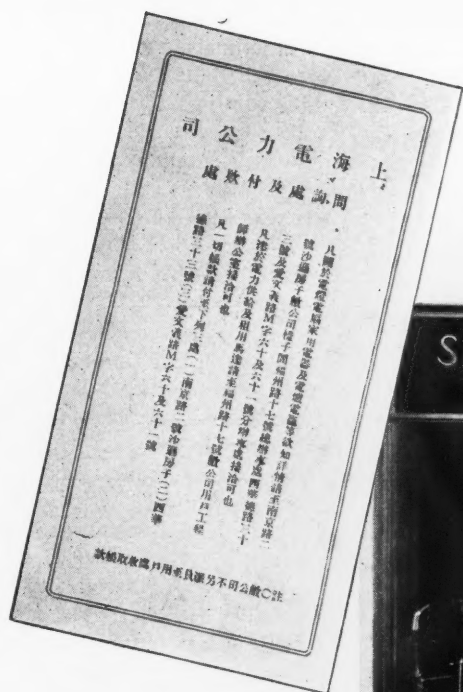 上海電力公司
問詢處及付欵處
凡關於電燈電扇家用電器及電暖電爐等欲知詳情請至南京路二
號沙遜房子敝公司樣子間福州路十七號總辦事處西華德路三十
三號及愛文義路M字六十及六十一號分辦事處接洽可也
凡港於電力供給及租用馬達請至福州路十七號敝公司用戶工程
師辦公室接洽可也
凡一切橫欵請付至下列三處(一)南京路二號沙遜房子(二)西華
德路三十三號(三)愛文義路M字六十及六十一號
註〇敝公司不另派員至用戶處收取橫欵
S